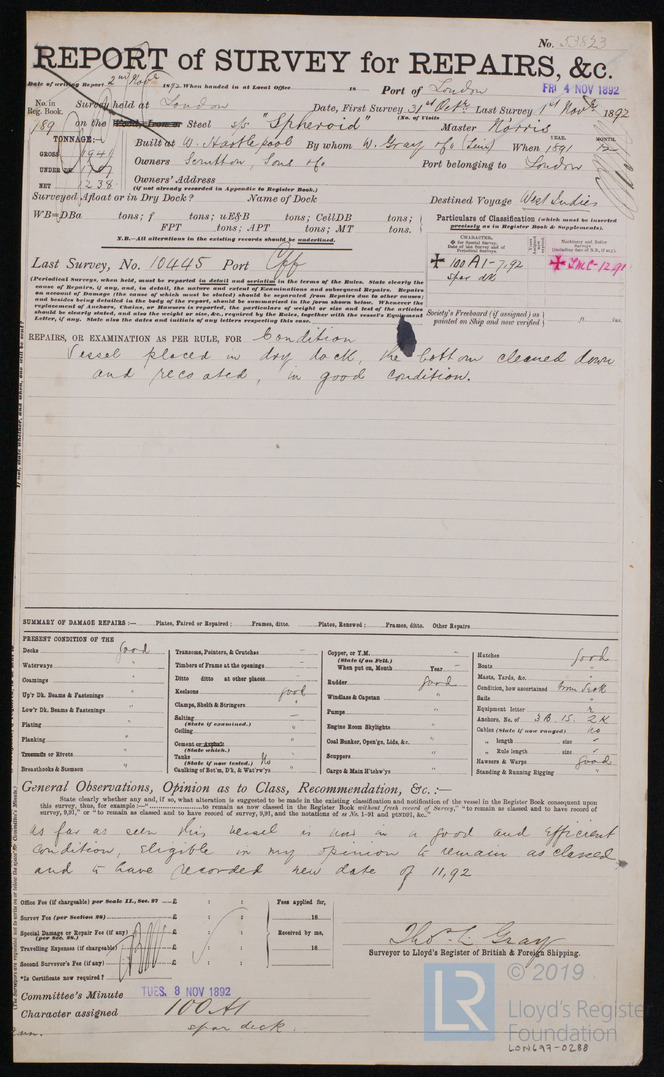 No. 53823
REPORT of SURVEY for REPAIRS, &c.
Date of writing Report 2nd Novr 1892 When handed in at Local Office 18 Port of London FRI 4 NOV 1892
No. in Reg. Book. Survey held at London Date, First Survey 31st Octr Last Survey 1st Novr 1892
(No. of Visits )
189 on the Wood, Iron or Steel s/s "Spheroid" Master Norris
TONNAGE:—
GROSS 1949
UNDER DK
NET 1238
Built at W. Hartlepool By whom W. Gray & Co (Lim) When 1891 12
YEAR. MONTH.
Owners Scrutton, Sons & Co Port belonging to London
Owners' Address
(if not already recorded in Appendix to Register Book.)
Surveyed Afloat or in Dry Dock? Name of Dock Destined Voyage West Indies
WB=DBa tons; f tons; uE&B tons; CellDB tons;
FPT tons; APT tons; MT tons.
N.B.—All alterations in the existing records should be underlined.
Particulars of Classification (which must be inserted precisely as in Register Book & Supplements).
CHARACTER,
✠ for Special Survey.
Date of last Survey and of Periodical Surveys.
Machinery and Boiler Surveys
(including date of N.B., if any).
✠ 100A1-7,92
spar dk
✠ LMC-12,91
Society's Freeboard (if assigned) as painted on Ship and now verified
Last Survey, No. 10445 Port Cff
(Periodical Surveys, when held, must be reported in detail and seriatim in the terms of the Rules. State clearly the cause of Repairs, if any, and, in detail, the nature and extent of Examinations and subsequent Repairs. Repairs on account of Damage (the cause of which must be stated) should be separated from Repairs due to other causes; and besides being detailed in the body of the report, should be summarised in the form shown below. Whenever the replacement of Anchors, Chains, or Hawsers is reported, the particulars of weight or size and test of the articles should be clearly stated, and also the weight or size, &c., required by the Rules, together with the vessel's Equipment Letter, if any. State also the dates and initials of any letters respecting this case.
REPAIRS, OR EXAMINATION AS PER RULE, FOR Condition
Vessel placed in dry dock, the bottom cleaned down
and recoated, in good condition.
SUMMARY OF DAMAGE REPAIRS:— Plates, Faired or Repaired; Frames, ditto. Plates, Renewed; Frames, ditto. Other Repairs
PRESENT CONDITION OF THE
Decks good
Waterways "
Coamings "
Up'r Dk. Beams & Fastenings "
Low'r Dk. Beams & Fastenings "
Plating "
Planking "
Treenails or Rivets "
Breasthooks & Stemson "
Transoms, Pointers, & Crutches —
Timbers of Frame at the openings —
Ditto ditto at other places —
Keelsons good
Clamps, Shelfs & Stringers "
Salting —
(State if examined.)
Ceiling "
Cement or Asphalt "
(State which.)
Tanks No
(State if now tested.)
Caulking of Bot'm, D'k, & Wat'rw'ys "
Copper, or Y.M. —
(State if on Felt.)
When put on, Month — Year —
Rudder good
Windlass & Capstan "
Pumps "
Engine Room Skylights "
Coal Bunker, Open'gs, Lids, &c. "
Scuppers "
Cargo & Main H'tchw'ys "
Hatches good
Boats "
Masts, Yards, &c. "
Condition, how ascertained from deck
Sails "
Equipment letter
Anchors, No. of 3B. 1S. 2K
Cables (State if now ranged) no
" length size
" Rule length size
Hawsers & Warps good
Standing & Running Rigging "
General Observations, Opinion as to Class, Recommendation, &c.:—
State clearly whether any and, if so, what alteration is suggested to be made in the existing classification and notification of the vessel in the Register Book consequent upon this survey, thus, for example:—" to remain as now classed in the Register Book without fresh record of Survey," "to remain as classed and to have record of survey, 9,91," or "to remain as classed and to have record of survey, 9,91, and the notations of ss No. 1-91 and ptND91, &c."
As far as seen this vessel is now in a good and efficient
condition, Eligible in my opinion to remain as classed
and to have recorded new date of 11,92
Office Fee (if chargeable) per Scale II., Sec. 27 £ : :
Survey Fee (per Section 28) £ : :
Special Damage or Repair Fee (if any) (per Sec. 28.) £ : :
Travelling Expenses (if chargeable) £ : :
Second Surveyor's Fee (if any) £ : :
*Is Certificate now required?
Fees applied for,
18
Received by me,
18
Thos. L. Gray
Surveyor to Lloyd's Register of British & Foreign Shipping.
Committee's Minute TUES. 8 NOV 1892
Character assigned 100A1
spar deck.
LR © 2019
Lloyd's Register
Foundation
LON697-0288